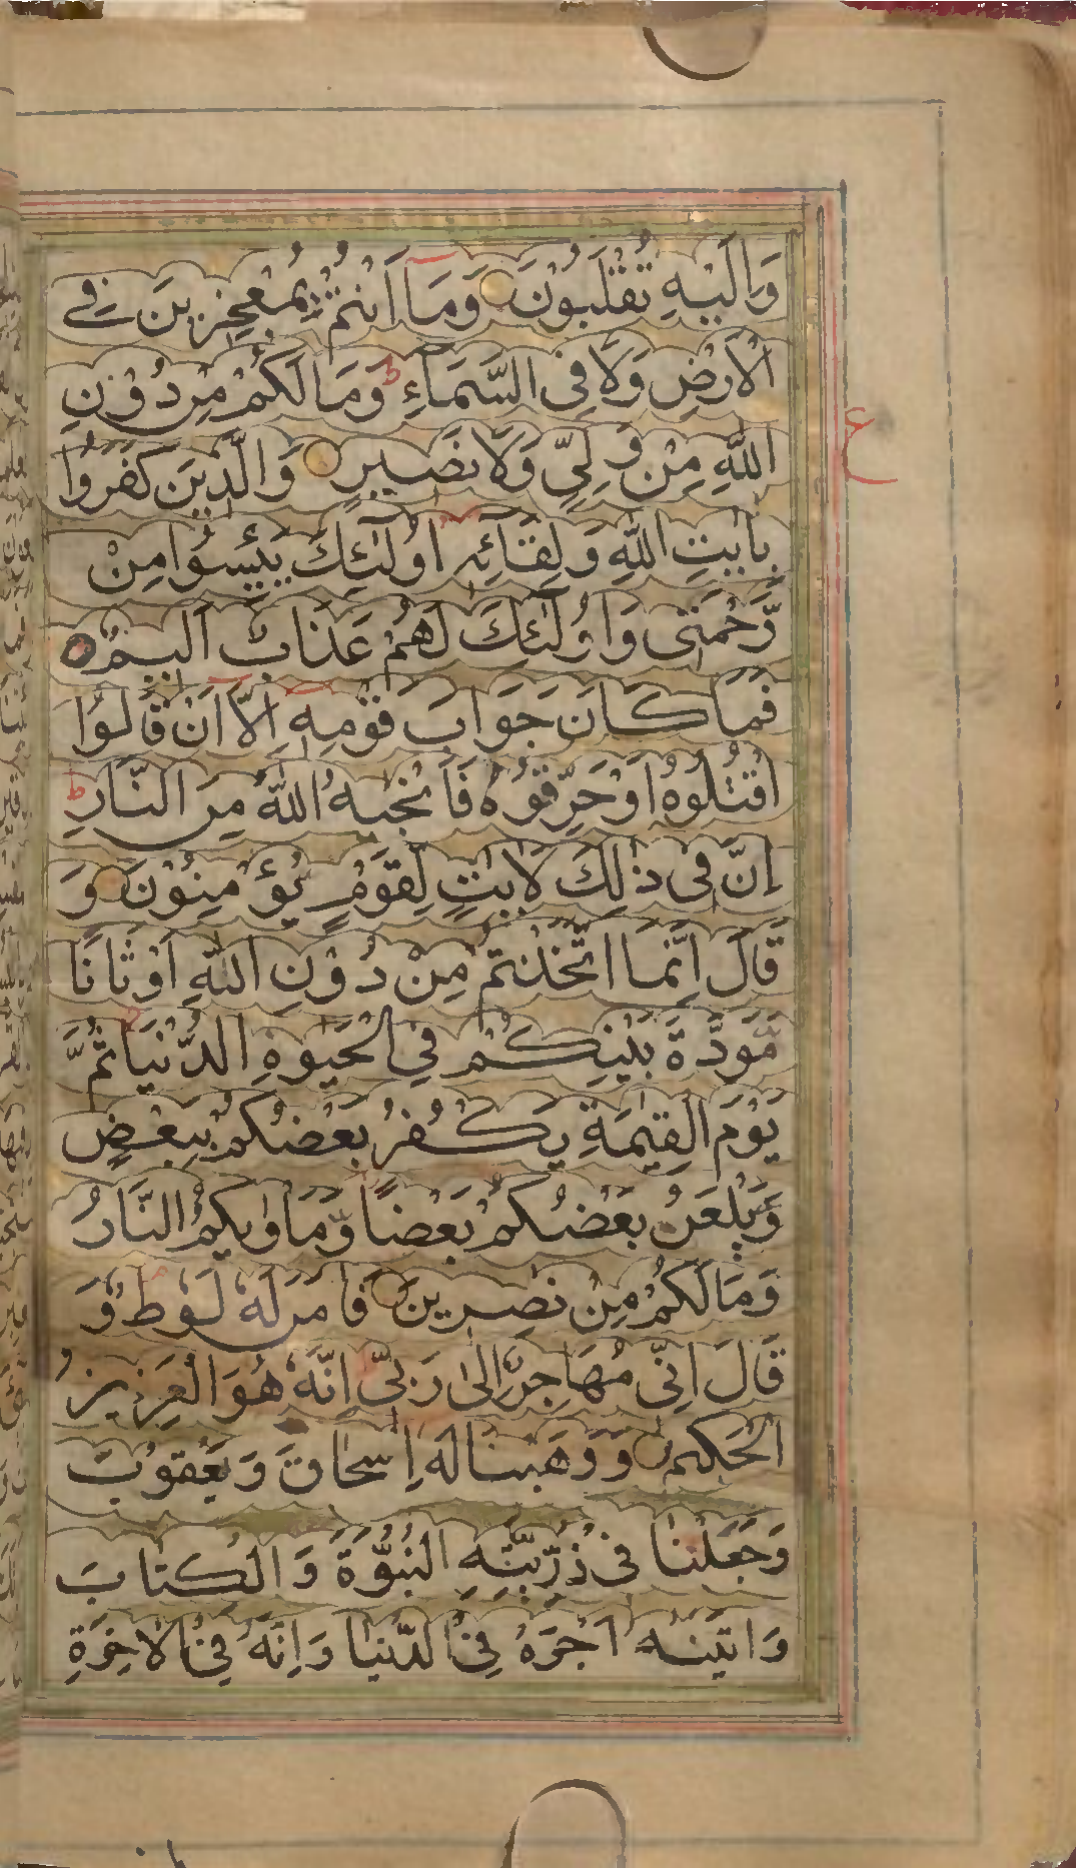 وَاِلَيْهِ تُقْلَبُوْنَ وَمَآ اَنْتُمْ بِمُعْجِزِيْنَ فِے
الْاَرْضِ وَلَا فِى السَّمَآءِ ط وَمَا لَكُمْ مِنْ دُوْنِ
اللّٰهِ مِنْ وَّلِىٍّ وَّلَا نَصِيْرٍ وَالَّذِيْنَ كَفَرُوْا
بِاٰيٰتِ اللّٰهِ وَلِقَآئِهٖ اُولٰٓئِكَ يَئِسُوْا مِنْ
رَّحْمَتِىْ وَاُولٰٓئِكَ لَهُمْ عَذَابٌ اَلِيْمٌ
فَمَا كَانَ جَوَابَ قَوْمِهٖٓ اِلَّآ اَنْ قَالُوا
اقْتُلُوْهُ اَوْ حَرِّقُوْهُ فَاَنْجٰىهُ اللّٰهُ مِنَ النَّارِ ط
اِنَّ فِى ذٰلِكَ لَاٰيٰتٍ لِّقَوْمٍ يُّؤْمِنُوْنَ وَ
قَالَ اِنَّمَا اتَّخَذْتُمْ مِنْ دُوْنِ اللّٰهِ اَوْثَانًا
مَّوَدَّةَ بَيْنِكُمْ فِي الْحَيٰوةِ الدُّنْيَا ثُمَّ
يَوْمَ الْقِيٰمَةِ يَكْفُرُ بَعْضُكُمْ بِبَعْضٍ
وَّيَلْعَنُ بَعْضُكُمْ بَعْضًا وَّمَاْوٰىكُمُ النَّارُ
وَمَا لَكُمْ مِنْ نّٰصِرِيْنَ فَاٰمَنَ لَهٗ لُوْطٌ وَ
قَالَ اِنِّىْ مُهَاجِرٌ اِلٰى رَبِّىْ اِنَّهٗ هُوَ الْعَزِيْزُ
الْحَكِيْمُ وَوَهَبْنَا لَهٗ اِسْحَاقَ وَيَعْقُوْبَ
وَجَعَلْنَا فِى ذُرِّيَّتِهِ النُّبُوَّةَ وَالْكِتَابَ
وَاٰتَيْنٰهُ اَجْرَهٗ فِى الدُّنْيَا وَاِنَّهٗ فِى الْاٰخِرَةِ
ع